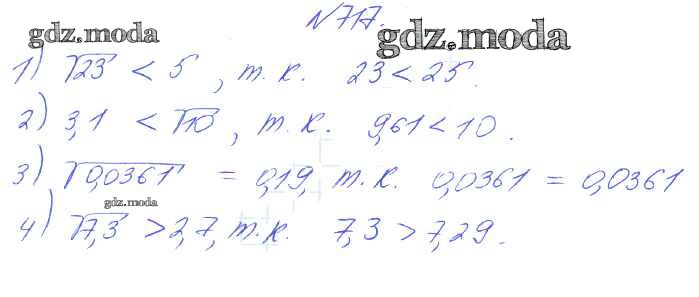 N717.
gdz.moda
gdz.moda
1) √23 < 5, т.к. 23 < 25.
2) 3,1 < √10, т.к. 9,61 < 10.
3) √0,0361 = 0,19, т.к. 0,0361 = 0,0361
gdz.moda
4) √7,3 > 2,7, т.к. 7,3 > 7,29.